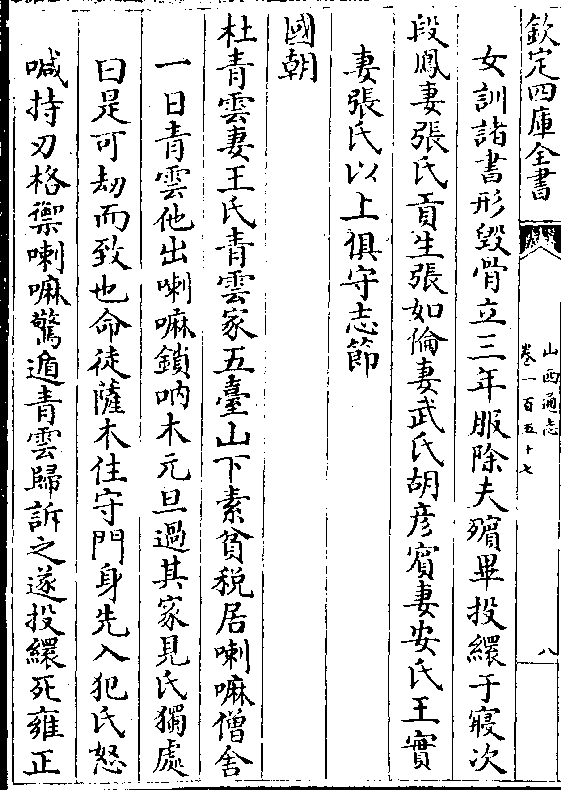 欽定四庫全書
山西通志
卷一百五十七
八
女訓諸書形毀骨立三年服除夫殯畢投繯于寢次
段鳳妻張氏貢生張如倫妻武氏胡彥賓妻安氏王實
妻張氏以上俱守志節
國朝
杜青雲妻王氏青雲家五臺山下素貧稅居喇嘛僧舍
一日青雲他出喇嘛鎖吶木元旦過其家見氏獨處
曰是可劫而致也命徒薩木住守門身先入犯氏怒
喊持刃格禦喇嘛驚遁青雲歸訴之遂投繯死雍正